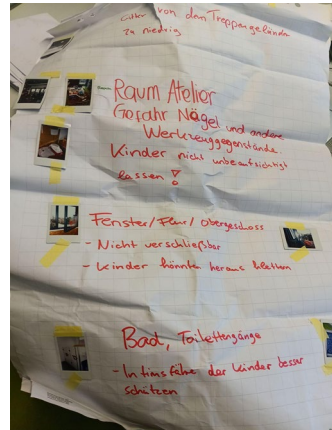 Gitter von dem Treppengeländer
zu niedrig
Raum Atelier
Gefahr Nägel und andere
Werkzeuggegenstände.
Kinder nicht unbeaufsichtigt
lassen !
Fenster/Flur/Obergeschoss
- Nicht verschließbar
- Kinder könnten heraus klettern
Bad, Toilettengänge
- Intimsfähre der Kinder besser
schützen